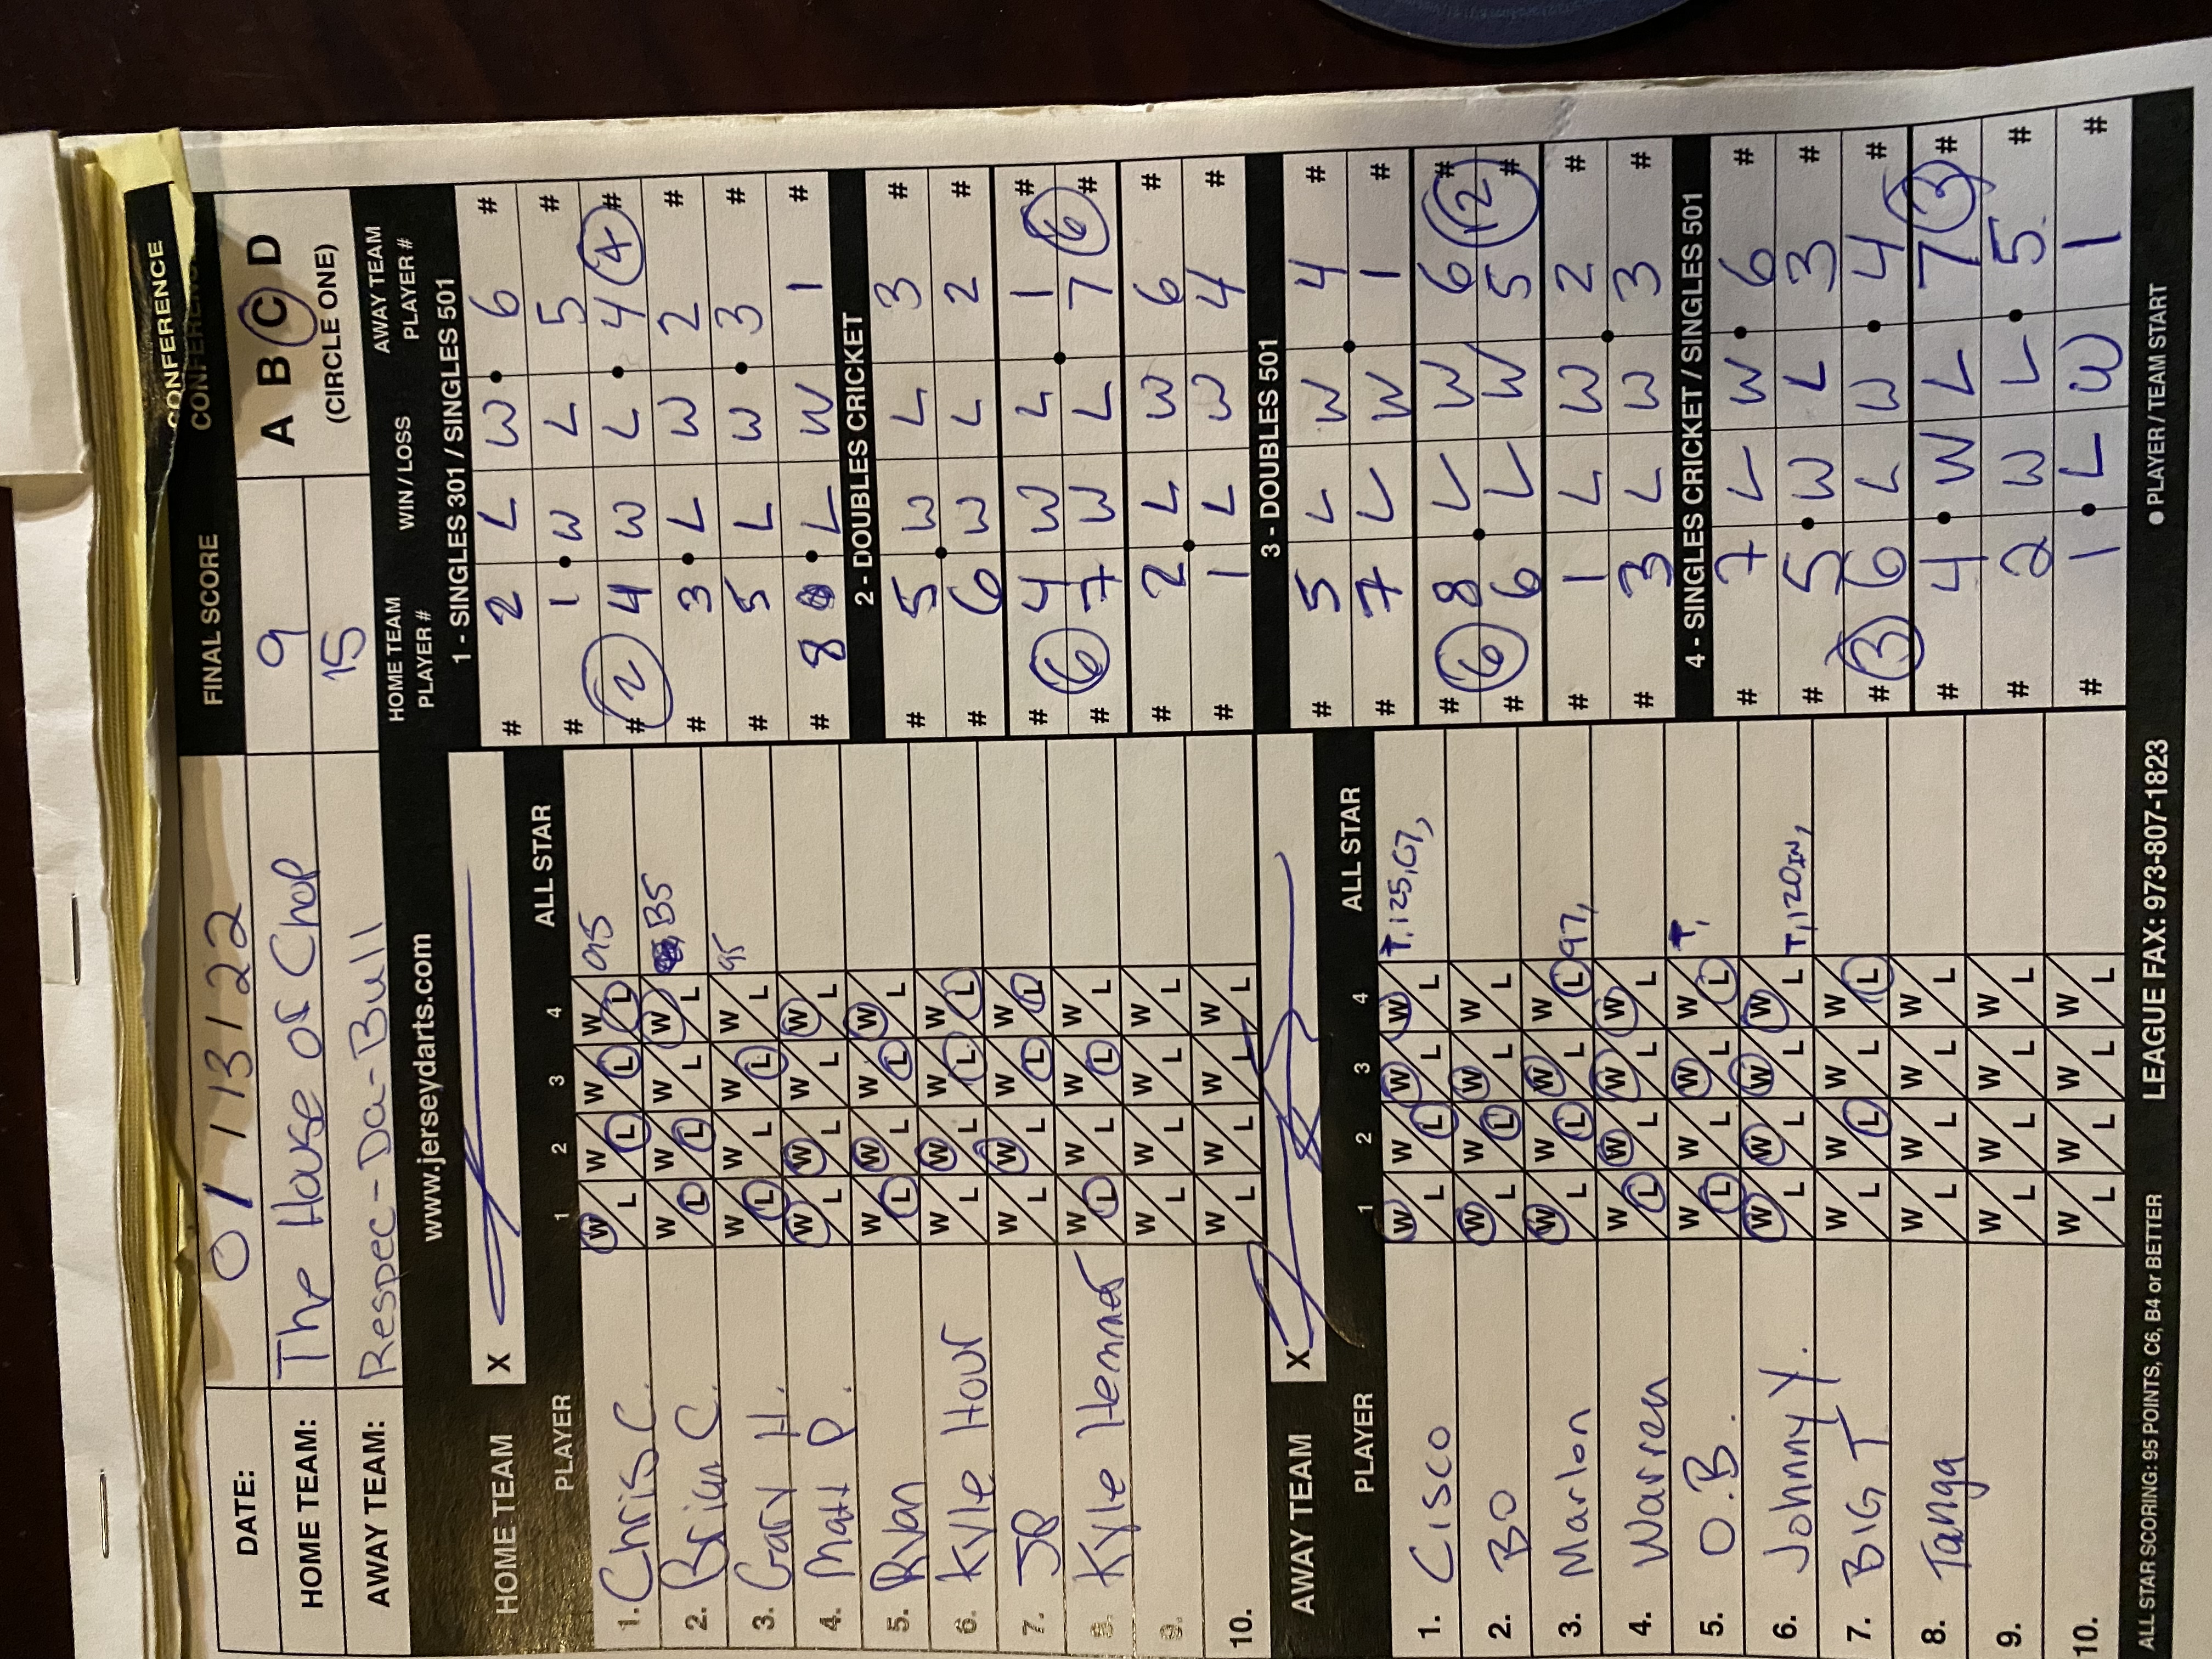 CONFERENCE
FINAL SCORE CONFERENCE
DATE: 01/13/22
A B C D
(CIRCLE ONE)
HOME TEAM: The House Of Chop 9
AWAY TEAM: Respec-Da-Bull 15
www.jerseydarts.com
HOME TEAM X
PLAYER 1 2 3 4 ALL STAR
1. Chris C. W L W L W L W L 95
2. Brian C. W L W L W L W L B5
3. Gary H. W L W L W L W L 95
4. Matt P. W L W L W L W L
5. Ryan W L W L W L W L
6. Kyle Hour W L W L W L W L
7. JR W L W L W L W L
8. Kyle Hemmer W L W L W L W L
9. W L W L W L W L
10. W L W L W L W L
AWAY TEAM X
PLAYER 1 2 3 4 ALL STAR
1. Cisco W L W L W L W L T,125,C7,
2. BO W L W L W L W L
3. Marlon W L W L W L W L 97,
4. Warren W L W L W L W L
5. O.B. W L W L W L W L T,
6. Johnny Y. W L W L W L W L T,120IN,
7. BIG T W L W L W L W L
8. Tanga W L W L W L W L
9. W L W L W L W L
10. W L W L W L W L
HOME TEAM PLAYER # WIN / LOSS AWAY TEAM PLAYER #
1 - SINGLES 301 / SINGLES 501
# 2 L W 6 #
# 1 W L 5 #
# 2 4 W L 4 4 #
# 3 L W 2 #
# 5 L W 3 #
# 8 L W 1 #
2 - DOUBLES CRICKET
# 5 W L 3 #
# 6 W L 2 #
# 4 W L 1 #
# 6 7 W L 7 6 #
# 2 L W 6 #
# 1 L W 4 #
3 - DOUBLES 501
# 5 L W 4 #
# 7 L W 1 #
# 6 8 L W 6 12 #
# 6 L W 5 #
# 1 L W 2 #
# 3 L W 3 #
4 - SINGLES CRICKET / SINGLES 501
# 7 L W 6 #
# 5 W L 3 #
# 3 6 L W 4 #
# 4 W L 7 3 #
# 2 W L 5 #
# 1 L W 1 #
ALL STAR SCORING: 95 POINTS, C6, B4 or BETTER LEAGUE FAX: 973-807-1823 ● PLAYER / TEAM START